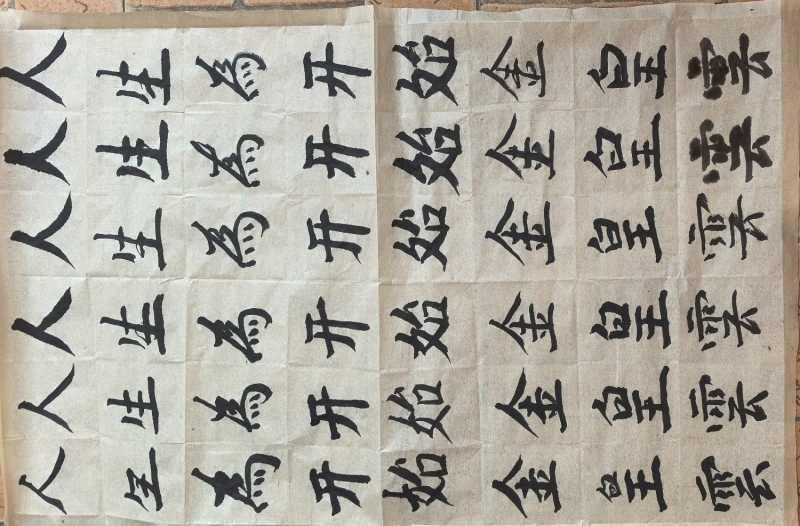 人生為开始金皇雲
人生為开始金皇雲
人生為开始金皇雲
人生為开始金皇雲
人生為开始金皇雲
人生為开始金皇雲